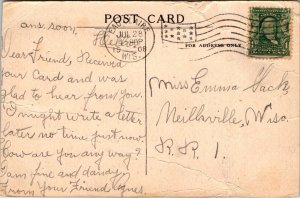 POST CARD
ans. soon.
JUL 28
1908
WIS.
FOR ADDRESS ONLY
Dear Friend, Received
your Card and was
glad to hear from you.
I might write a letter
later no time just now
How are you any way?
I am fine and dandy
From Your Friend Agnes.
Miss Emma Hack,
Neillsville, Wisc.
R.R. 1.